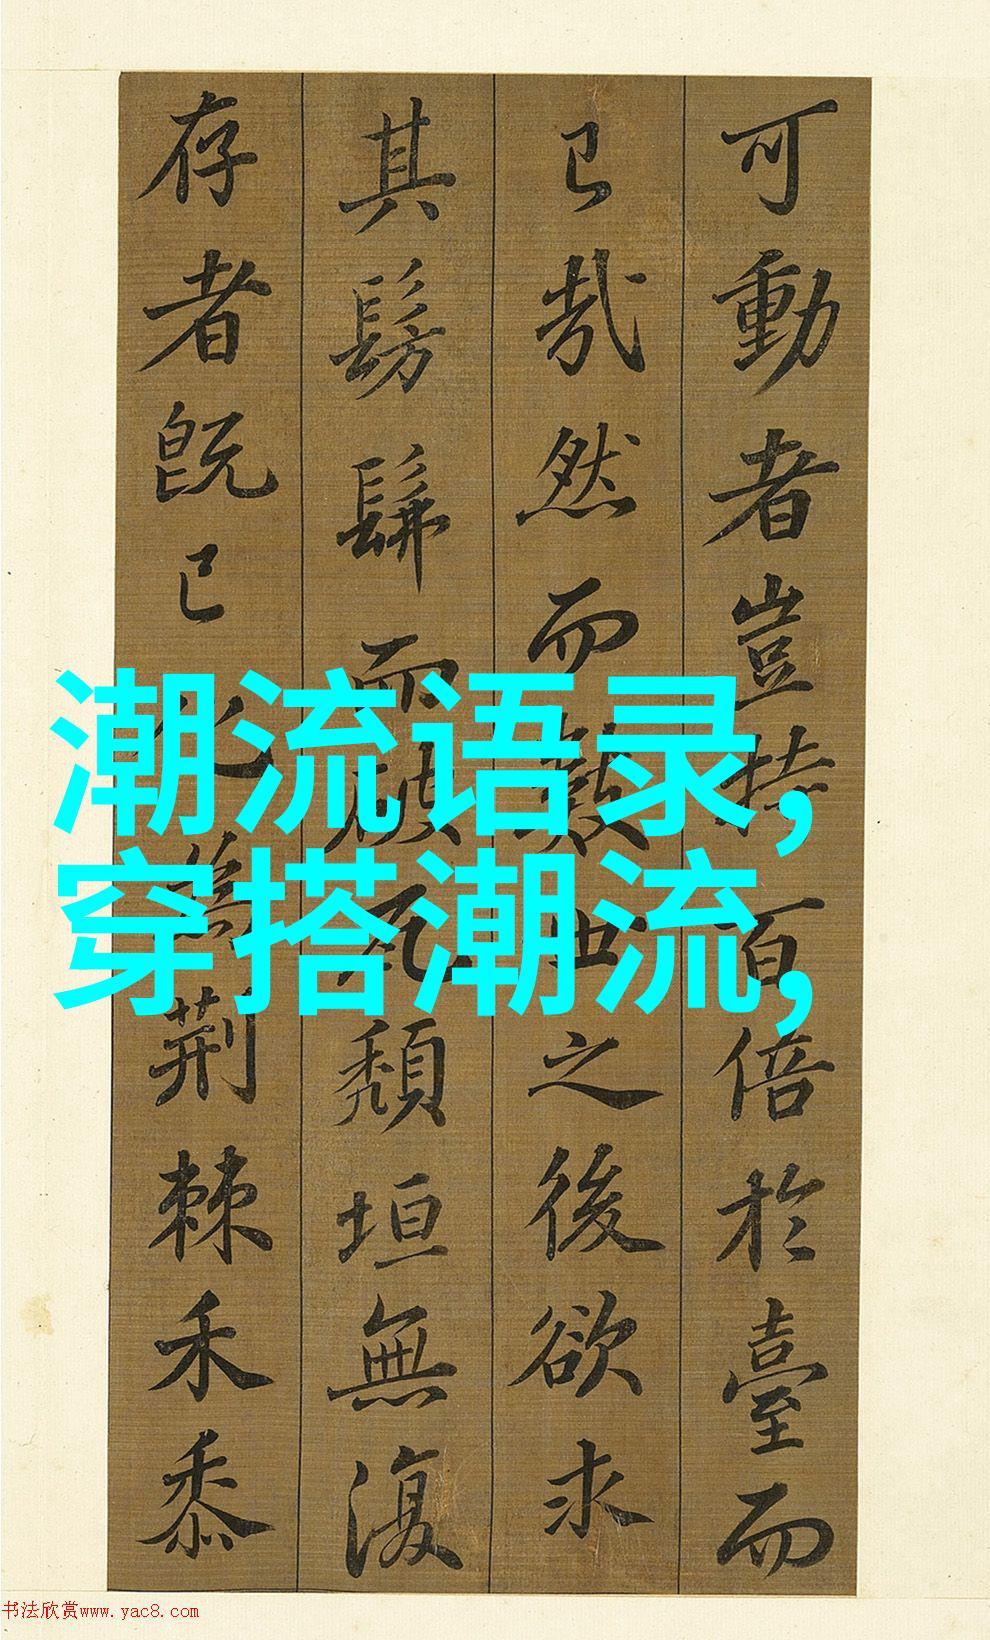 可動者豈特百倍於臺而
已哉然而數世之後欲求
其髣髴而破瓦頹垣無復
存者既已化為荊棘禾黍
潮流语录,
穿搭潮流,
书法欣赏www.yac8.com